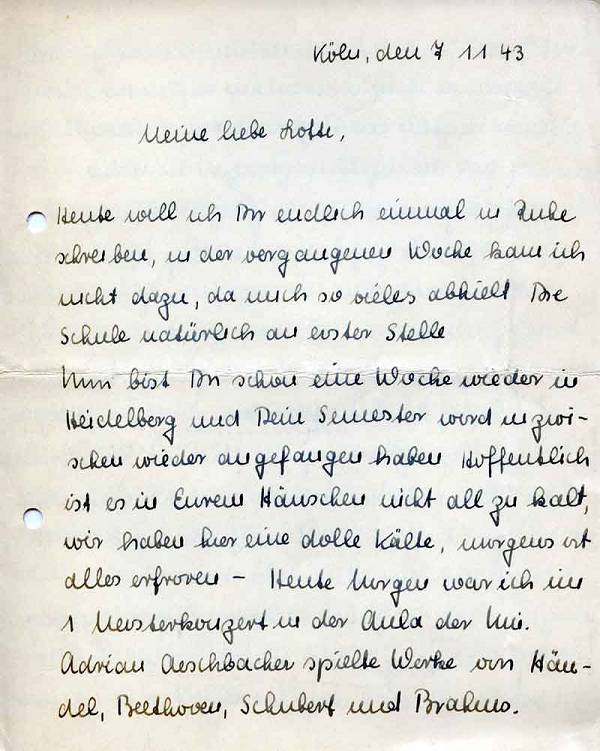 Köln, den 7 11 43
Meine liebe Lotte,
Heute will ich Dir endlich einmal in Ruhe
schreiben, in der vergangenen Woche kam ich
nicht dazu, da mich so vieles abhielt Die
Schule natürlich an erster Stelle
Nun bist Du schon eine Woche wieder in
Heidelberg und Dein Semester wird inzwi-
schen wieder angefangen haben Hoffentlich
ist es in Eurem Häuschen nicht all zu kalt,
wir haben hier eine dolle Kälte, morgens ist
alles erfroren - Heute Morgen war ich im
1 Meisterkonzert in der Aula der Uni.
Adrian Aeschbacher spielte Werke von Hän-
del, Beethoven, Schubert und Brahms.